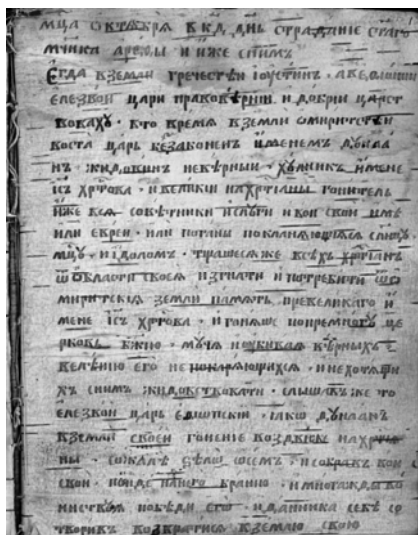 мц҃а октѧбрѧ в к҃д, днь страданїе ст҃аго
мч҃нка арефы и иже снимъ
Егда вземли гречестѣй іоустинъ. а веѳїопїи
елезвои цари правовѣрнїи, и добрїи царст
вовахꙋ. вто время вземли омиритстѣи
бѣста царь беззаконенъ именемъ дꙋнаа
нъ жидовинъ невѣрныи. хꙋлникъ имене
іс҃ъ хр҃това. ивеликїи нахр҃тїаны гонитель
иже вся совѣтники ислꙋги ивои свои имѣ
или евреи. или поганы покланяющияся слнцꙋ
мцꙋ. иідоломъ. тщашеся же всѣхъ хр҃тїанъ
ѿобласти своея изгнати ипотребити ѿо
миритскїя земли память превеликаго и
мене іс҃ъ хр҃това. игоняше попремногꙋ це
рковь бж҃ию. мꙋчя иꙋбивая вѣрныхъ
велѣнию его непокаряющихся. инехотящи
хъ снимъ жидовствовати. слышавъ же то
елезвои царь еѳиопскїи. іако дꙋнаанъ
вземли своеи гонение воздвиже нахр҃тїа
ны. сожалѣ ѕѣло ѡсемъ. исобравъ вои
свои. поиде нанего бранию. имногажды во
инствꙋя победи его. иданника себѣ со
творивъ возвратися вземлю свою